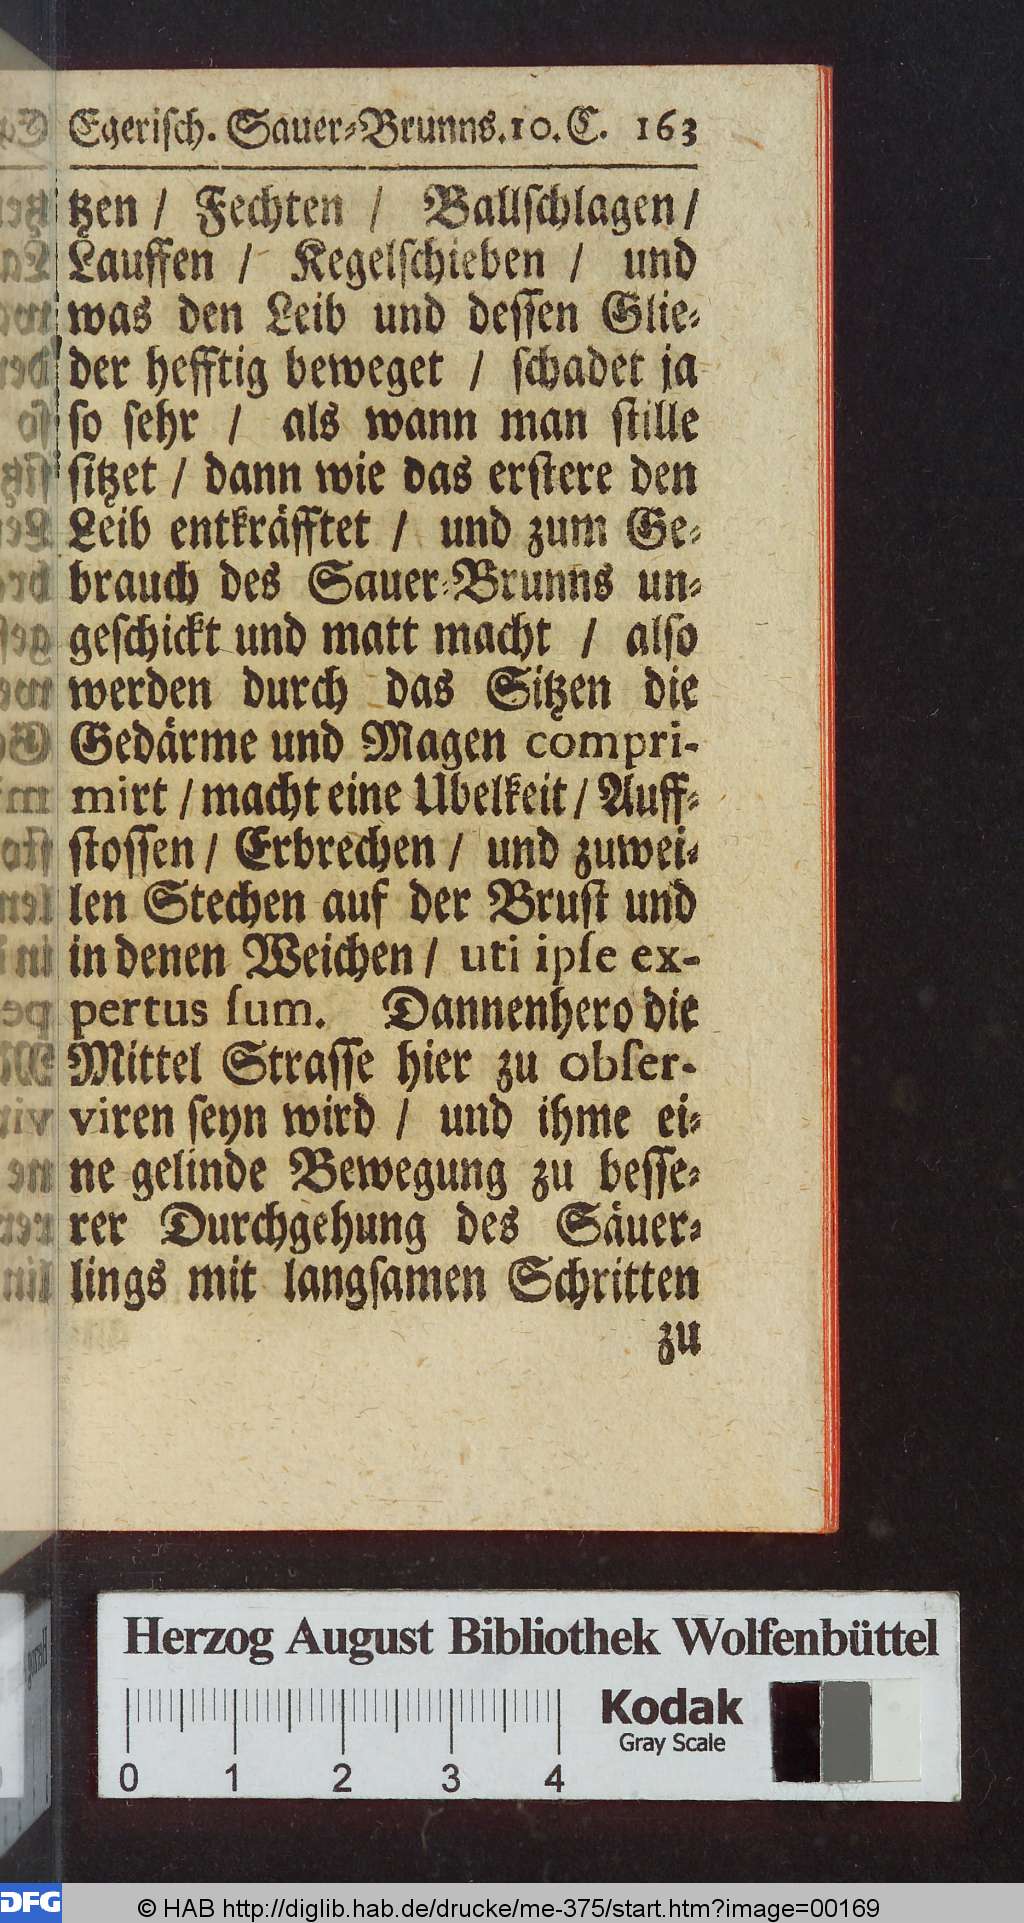 Egeriſch. Sauer-Brunns. 10. C. 163
tzen / Fechten / Ballſchlagen /
Lauffen / Kegelſchieben / und
was den Leib und deſſen Glie-
der hefftig beweget / ſchadet ja
ſo ſehr / als wann man ſtille
ſitzet / dann wie das erſtere den
Leib entkräfftet / und zum Ge-
brauch des Sauer-Brunns un-
geſchickt und matt macht / alſo
werden durch das Sitzen die
Gedärme und Magen compri-
mirt / macht eine Ubelkeit / Auff-
ſtoſſen / Erbrechen / und zuwei-
len Stechen auf der Bruſt und
in denen Weichen / uti ipſe ex-
pertus ſum. Dannenhero die
Mittel Straſſe hier zu obſer-
viren ſeyn wird / und ihme ei-
ne gelinde Bewegung zu beſſe-
rer Durchgehung des Säuer-
lings mit langſamen Schritten
zu
Herzog August Bibliothek Wolfenbüttel
Kodak
Gray Scale
0 1 2 3 4
DFG
© HAB http://diglib.hab.de/drucke/me-375/start.htm?image=00169